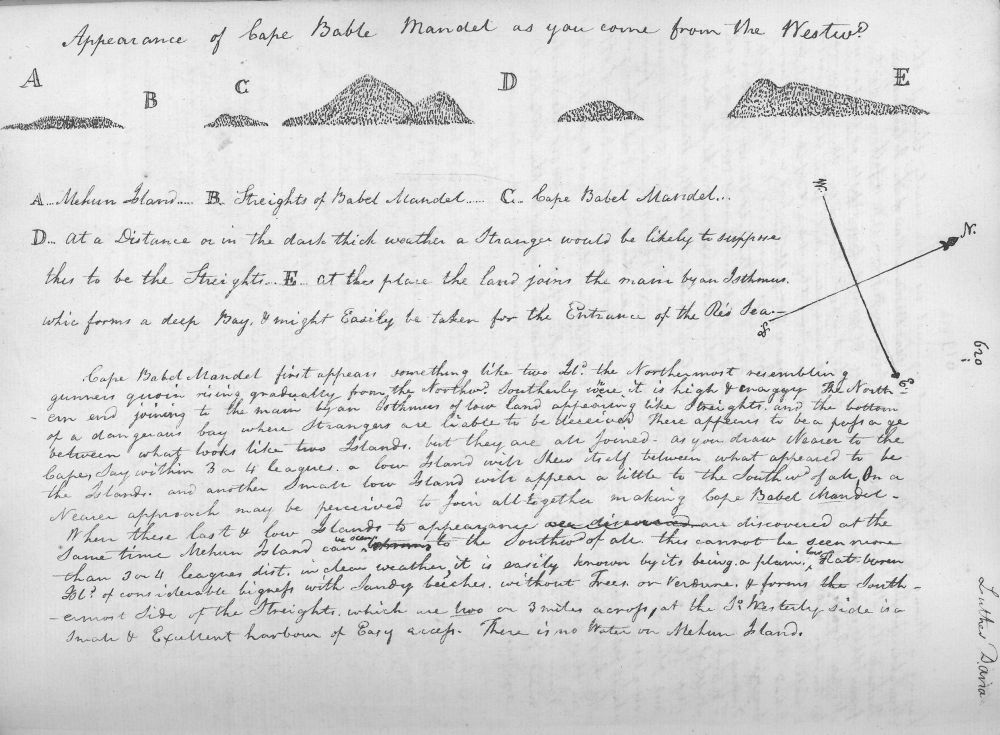 Appearance of Cape Bable Mandel as you come from the Westwd.
A B C D E
A... Mehun Island..... B.. Streights of Babel Mandel..... C... Cape Babel Mandel...
D... At a Distance or in the dark thick weather a Stranger would be likely to suppose
this to be the Streights... E... at this place the land joins the main by an Isthmus.
whic forms a deep Bay. & might Easily be taken for the Entrance of the Red Sea.—
W.
N.
So.
Es.
Cape Babel Mandel first appears something like two Ils. the Northermost resembling
gunners quoin rising gradually from the Northwd. Southerly were it is high & craggy The North-
ern end joining to the main by an Isthmus of low land appearing like Streights. and the bottom
of a dangerous bay where Strangers are liable to be deceived There appears to be a passage
between what looks like two Islands. but they are all joined - as you draw Nearer to the
Cape, Say within 3 or 4 leagues. a low Island will Shew itself between what appeared to be
the Islands. and another Small low Island will appear a little to the Southwd of all, On a
Nearer approach may be perceived to Join all together making Cape Babel Mandel-
When these last & low Islands to appearance are discovered are discovered at the
Same time Mehun Island can be seen to the Southwd of all. this cannot be seen more
than 3 or 4 leagues dist. in clear weather, it is easily known by its being a plain, low flat barren
Ild. of considerable bigness with Sandy beiches. without Trees or Verdure. & forms the South-
-ermost Side of the Streights. which are two or 3 miles across, at the So. Westerly side is a
Small & Excellent harbour of Easy access. There is no Water on Mehun Island.
620
Luther Davis